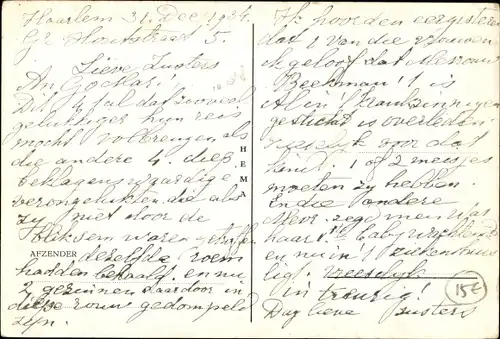 Haarlem 31 Dec 1934.
Gr Houtstraat 5.
Lieve Zusters
An
Dit zooveel
gelukkiger hun reis
mocht volbrengen als
die andere 4. diep
beklagenswaardige
verongelukten die als
zy niet door de
Bliksem waren getroffen
AFZENDER dezelfde roem
hadden behaald. en nu
2 gezinnen daardoor in
diepe rouw gedompeld
zyn.
HEMA
Ik hoorden eergisteren
dat 1 van die vrouwen
ik geloof dat Mevrouw
Beekman! is
in 't krankzinnigen
gesticht is overleden.
vreeselyk voor dat
kind. 1 of 2 meisjes
moeten zy hebben.
En die andere
Mevr. zegd men was
haar 1e Baby verwachtend
en nu in 't ziekenhuis
ligt. vreeselyk
in treurig!
Dag lieve zusters
15E